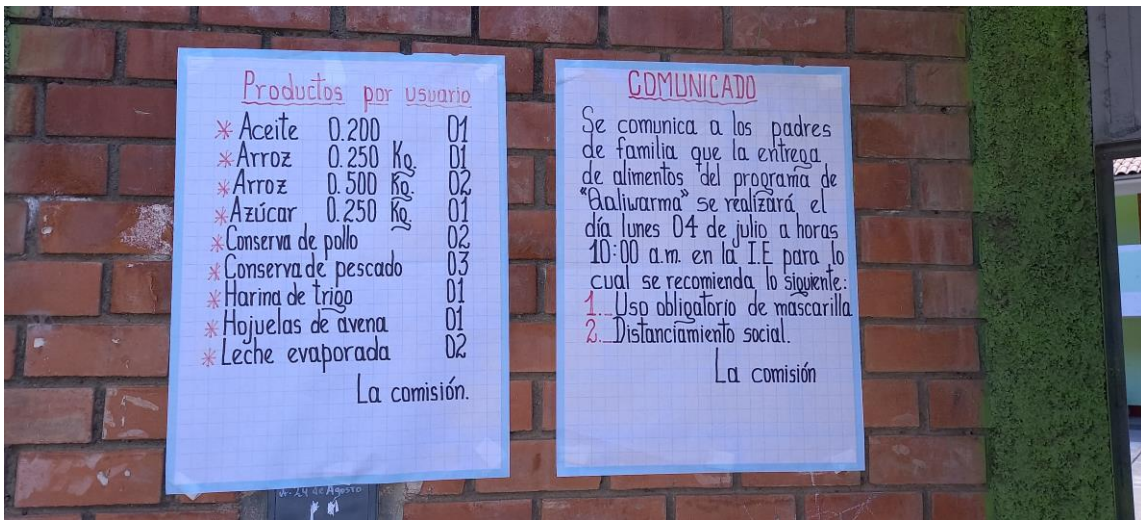 Productos por usuario
* Aceite 0.200 01
* Arroz 0.250 Kg. 01
* Arroz 0.500 Kg. 02
* Azúcar 0.250 Kg. 01
* Conserva de pollo 02
* Conserva de pescado 03
* Harina de trigo 01
* Hojuelas de avena 01
* Leche evaporada 02
La comisión.
COMUNICADO
Se comunica a los padres
de familia que la entrega
de alimentos del programa de
"Qaliwarma" se realizará el
día lunes 04 de julio a horas
10:00 a.m. en la I.E para lo
cual se recomienda lo siguiente:
1._ Uso obligatorio de mascarilla
2._ Distanciamiento social.
La comisión
24 de Agosto